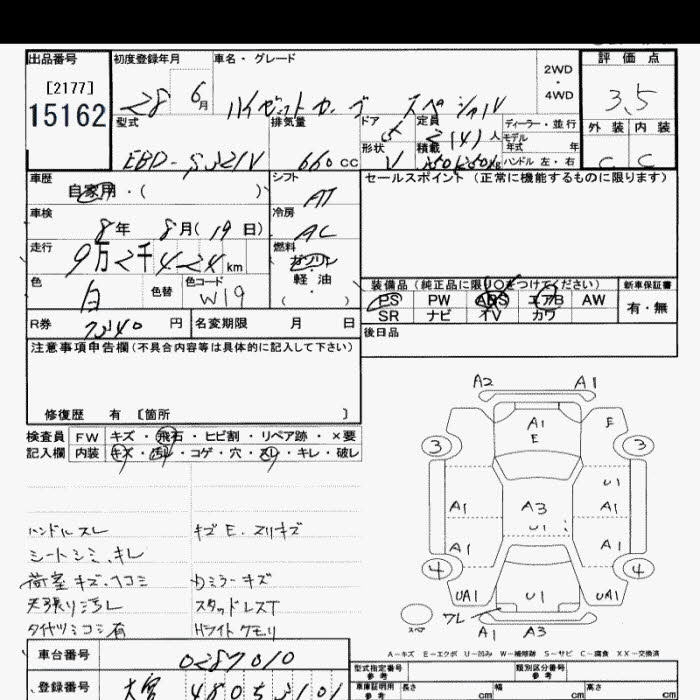 出品番号 初度登録年月 車名・グレード 評価点
[2177]
15162
28 6月 ハイゼットカーゴ スペシャル
2WD
・
4WD
3.5
型式 排気量 ドア 定員 ディーラー・並行 外装 内装
5 2(4)人 モデル年式 年
EBD-S321V 660cc
形状 積載 ハンドル 左・右
V C C
車歴 シフト セールスポイント(正常に機能するものに限ります)
自家用・( ) AT
車検 冷房
8年 8月(19日) AC
走行 燃料
9万2千424km ガソリン
軽油
( )
色 色替 色コード
白 W19
装備品(純正品に限り○をつけてください) 新車保証書
PS PW ABS エアB AW 有・無
SR ナビ TV カワ
R券 7340円 名変期限 月 日
後日品
注意事項申告欄(不具合内容等は具体的に記入して下さい)
修復歴 有 [箇所 ]
検査員 FW キズ・飛石・ヒビ割・リペア跡・×要
記入欄 内装 キズ・汚れ・コゲ・穴・スレ・キレ・破レ
ハンドルスレ キズE.スリキズ
シートシミ、キレ
荷室キズ、ヘコミ Dミラーキズ
天張り汚レ スタッドレスT
タイヤツミコミ有 Hライトクモリ
A2 A1
A1 E
E
3 3
U1
A1 A3 A1
U1
A1 A1
4 4
UA1 U1 UA1
スペア ワレ
A1 A3
A-キズ E-エクボ U-凹み W-補修跡 S-サビ C-腐食 XX-交換済
車台番号 0287010
型式指定番号 参考 類別区分番号 参考
登録番号 大宮 480
車庫証明用 参考 長さ cm 幅 cm 高さ cm